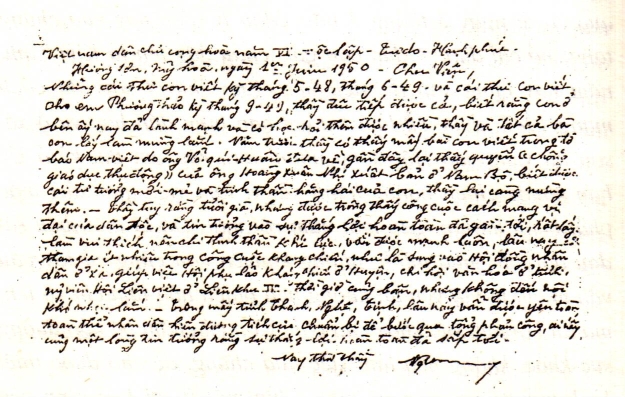 Việt nam dân chủ cộng hoà năm VI - Độc lập - Tự do - Hạnh phúc -
Hương sơn, Mỹ hoà, ngày 1er Juin 1950 - Cho Viễn,
Những cái thư con viết kỳ tháng 5-48, tháng 6-49 - và cái thư con viết
cho em Phương Thảo kỳ tháng 9-49, thầy đều tiếp được cả, biết rằng con ở
bên ấy nay đã lành mạnh và có học hỏi thêm được nhiều, thầy và tất cả bà
con lấy làm mừng lắm. Năm trước thầy có thấy mấy bài con viết trong tờ
báo Nam việt do ông Võ quí Huân đưa về, gần đây lại thấy quyển (chống
giáo dục thụ động) của ông Hoàng Xuân Nhị xuất bản ở Nam Bộ, biết được
cái tư tưởng mới mẻ và tinh thần hăng hái của con, thầy lại càng mừng
thêm. - Thầy tuy rằng tuổi già, nhưng được trông thấy công cuộc cách mạng vĩ
đại của dân tộc, và tin tưởng vào sự thắng lợi hoàn toàn đã gần tới, rất lấy
làm vui thích nên chi tinh thần khí lực, vẫn được mạnh luôn, lâu nay có
tham gia ít nhiều trong công cuộc kháng chiến, như là sung vào Hội đồng nhân
dân ở xã, giúp việc Hội phụ lão kháng chiến ở Huyện, chi hội văn hoá ở tỉnh,
uỷ viên Hội Liên việt ở Liên khu IV. thời giờ cũng bận, nhưng không đến nỗi
khó nhọc lắm. - trong mấy tỉnh Thanh, Nghệ, Tịnh, lâu nay vẫn được yên toàn,
toàn thể nhân dân hiện đương tích cực chuẩn bị để bước qua tổng phản công, ai nấy
cũng một lòng tin tưởng rằng sự thắng lợi hoàn toàn đã sắp tới. -
Nay thư thầy